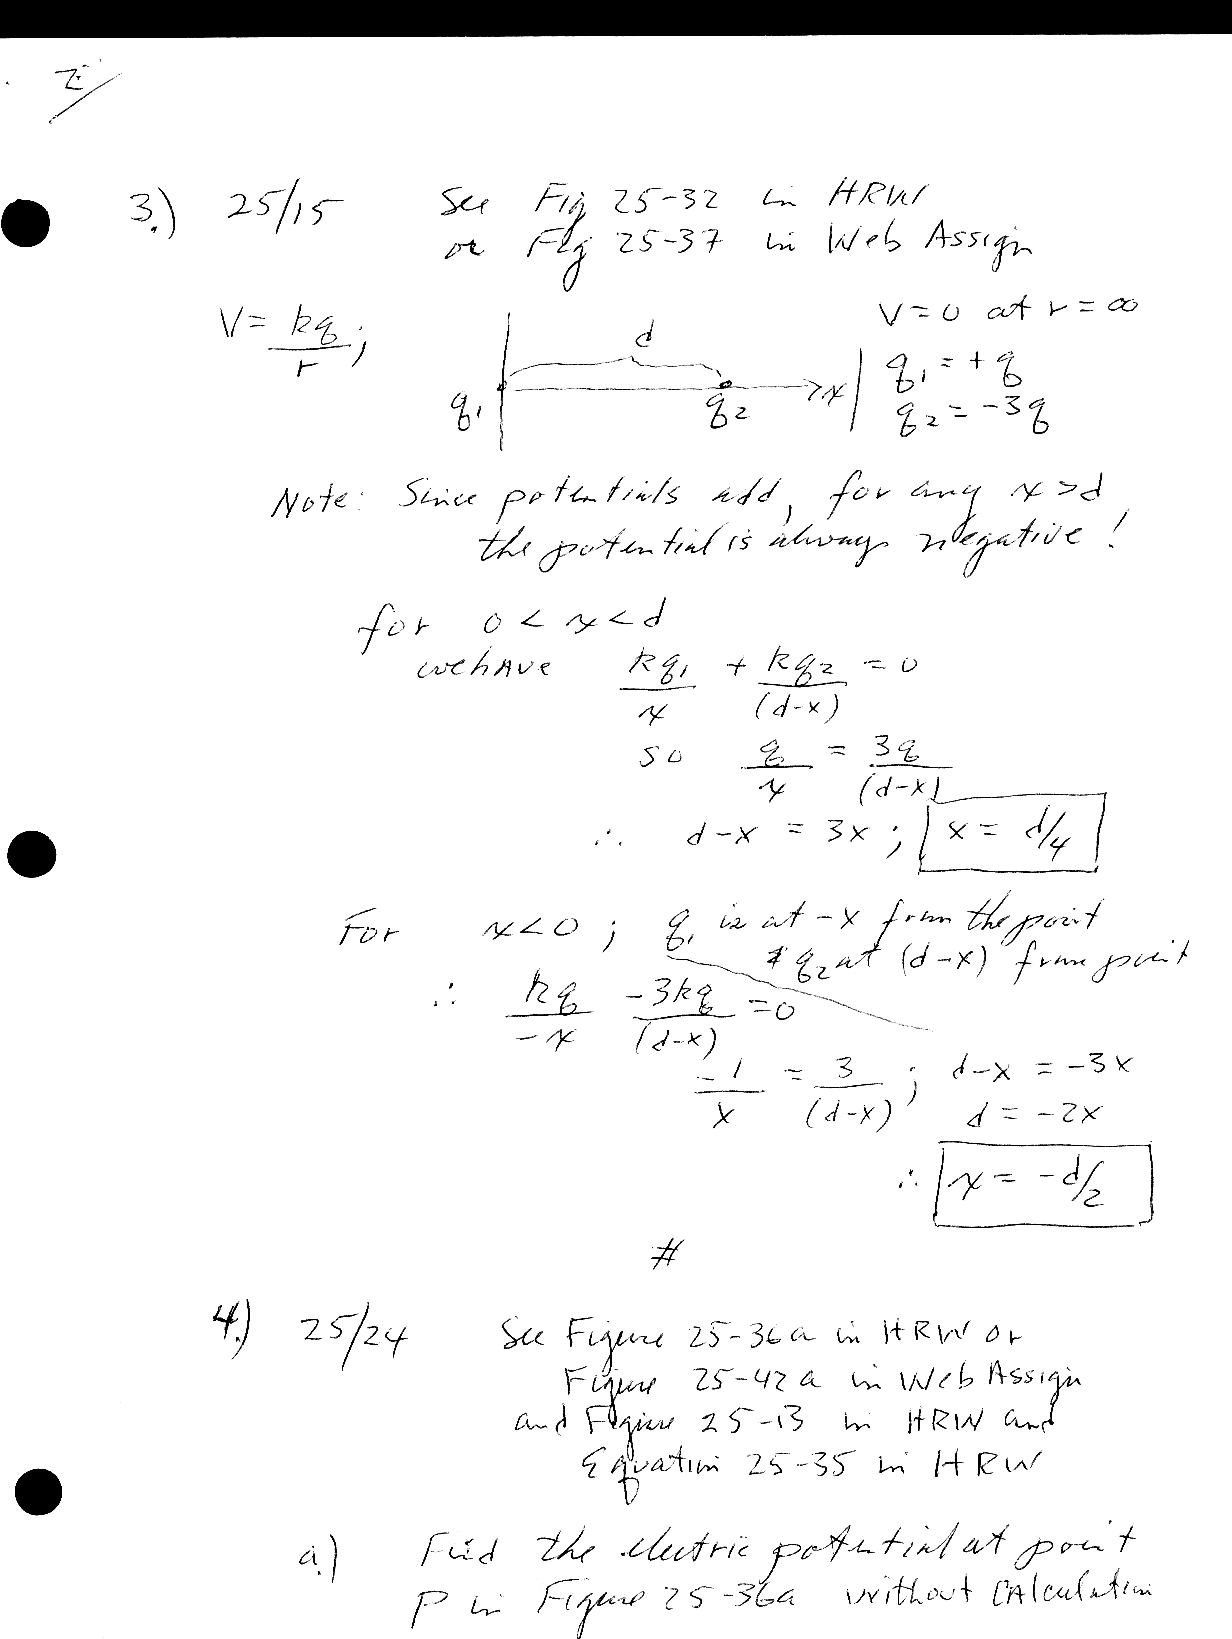 2/
3.) 25/15 See Fig 25-32 in HRW
or Fig 25-37 in Web Assign
V = kq/r ; V=0 at r=∞
d
q₁ q₂ x
q₁ = +q
q₂ = -3q
Note: Since potentials add, for any x>d
the potential is always negative!
for 0 < x < d
we have kq₁/x + kq₂/(d-x) = 0
so q/x = 3q/(d-x)
∴ d-x = 3x ; x = d/4
For x<0 ; q₁ is at -x from the point
& q₂ at (d-x) from point
∴ kq/-x -3kq/(d-x) = 0
-1/x = 3/(d-x) ; d-x = -3x
d = -2x
∴ x = -d/2
#
4.) 25/24 See Figure 25-36a in HRW or
Figure 25-42a in Web Assign
and Figure 25-13 in HRW and
Equation 25-35 in HRW
a.) Find the electric potential at point
P in Figure 25-36a without CAlculation